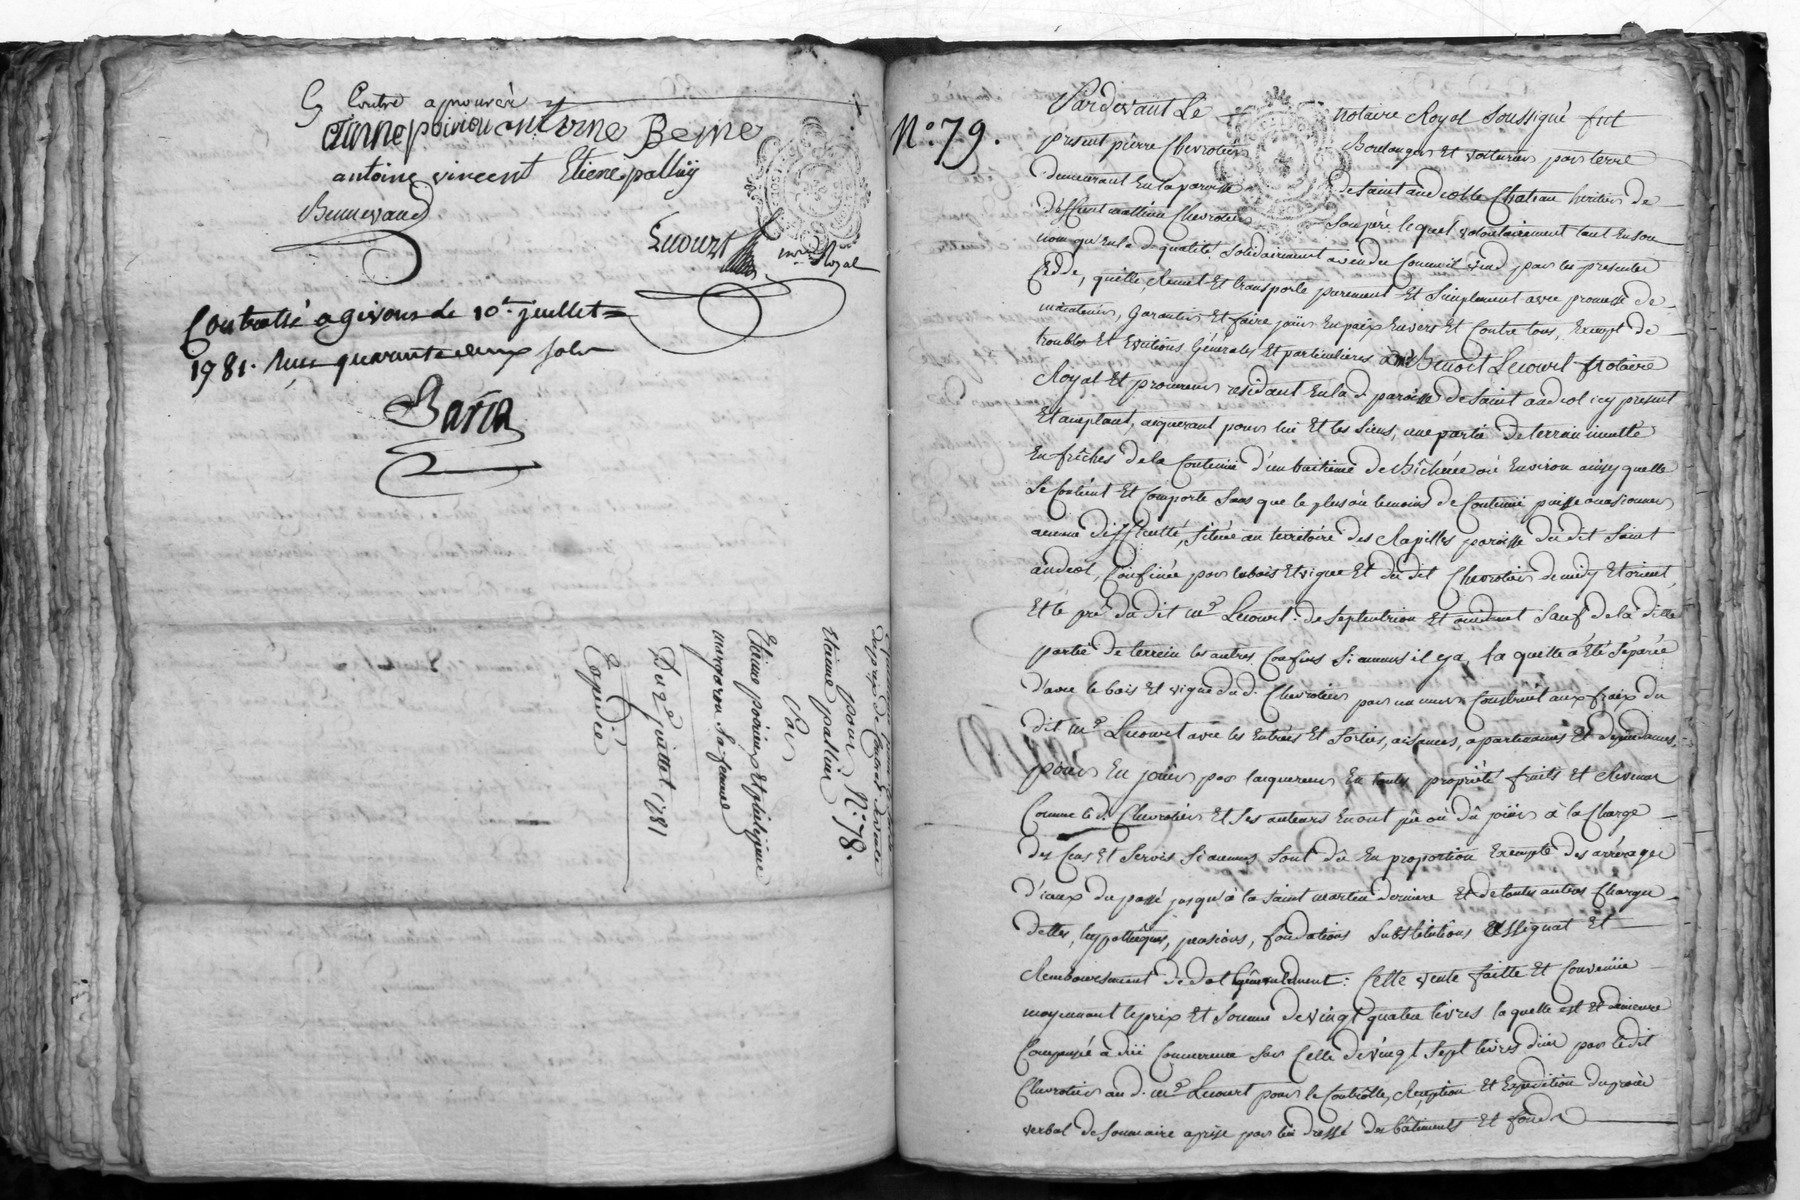 Contre approuvér
antoine vincent Etiene palluy
Bonnevaud
Lecourt nore Royal
Controllé a givors le 10e juillet
1781. Recu quarante deux sols
Barla
du prix de Contract de vente
pour N.o 78.
Etienne palluis
Par
Etienne poirieux Et philippine
margaron sa femme
Du 2e juillet 1781
Expedié
N.o 79.
Pardevant Le notaire Royal soussigné fut
present pierre Chevrotier Boulanger Et voiturier par terre
demeurant En la paroisse de Saint andeol le Chateau heritier de
deffunt mathieu Chevrotier Son pere lequel volontairement tant En son
nom qu'en lad. qualité, solidairement a vendu Comme il vend par les presentes
Cedde, quitte Remet Et transporte purement Et Simplement avec promesse de
maintenir, garantir Et faire jouir En paix Envers Et Contre tous, Exempt de
troubles Et Evictions générales Et particulieres à me Benoit Lecourt Notaire
Royal Et procureur residant En lad. paroisse de Saint andeol icy present
Et acceptant, acquerant pour lui Et les Siens, une partie de terrein inculte
En friches de la Contenue d'un huitieme de Bicherée ou Environ ainsy quelle
Se Contient Et Comporte Sans que le plus ou le moins de Contenue puisse occasionner
aucune difficulté, Située au territoire des Clapilles paroisse du dit Saint
andeol, Confinée par le bois Et vigne Et du dit Chevrotier de midy Et orient,
Et le pré du dit me Lecourt de Septentrion Et occident Sauf de la ditte
partie de terrein les autres Confins Si aucuns il y a, la quelle a Eté Séparée
d'avec le bois Et vigne du d. Chevrotier par un mur Construit aux fraix du
dit me Lecourt avec les Entrées Et Sorties, aisances, apartenances Et dependances,
pour En jouir par l'acquereur En toute propriété fruits Et Revenus
Comme le d. Chevrotier Et Ses auteurs En ont pû ou dû jouir à la Charge
des Cens Et Servis Si aucuns Sont dû En proportion Exempte des arrérages
d'iceux du passé jusqu'à la Saint martin derniere Et de toutes autres Charges
dettes, hypotheques, pensions, fondations Substitutions assignat Et
Remboursement de dot generalement: Cette vente faitte Et Convenüe
moyennant le prix Et Somme de vingt quatre livres laquelle est Et demeure
Compensée a düe Concurrence Sur Celle de vingt Sept livres düe par le dit
Chevrotier au d. me Lecourt pour le Controlle, Reception Et Expedition du procès
verbal de Sommaire aprise par lui dressé des bâtiments Et fonds